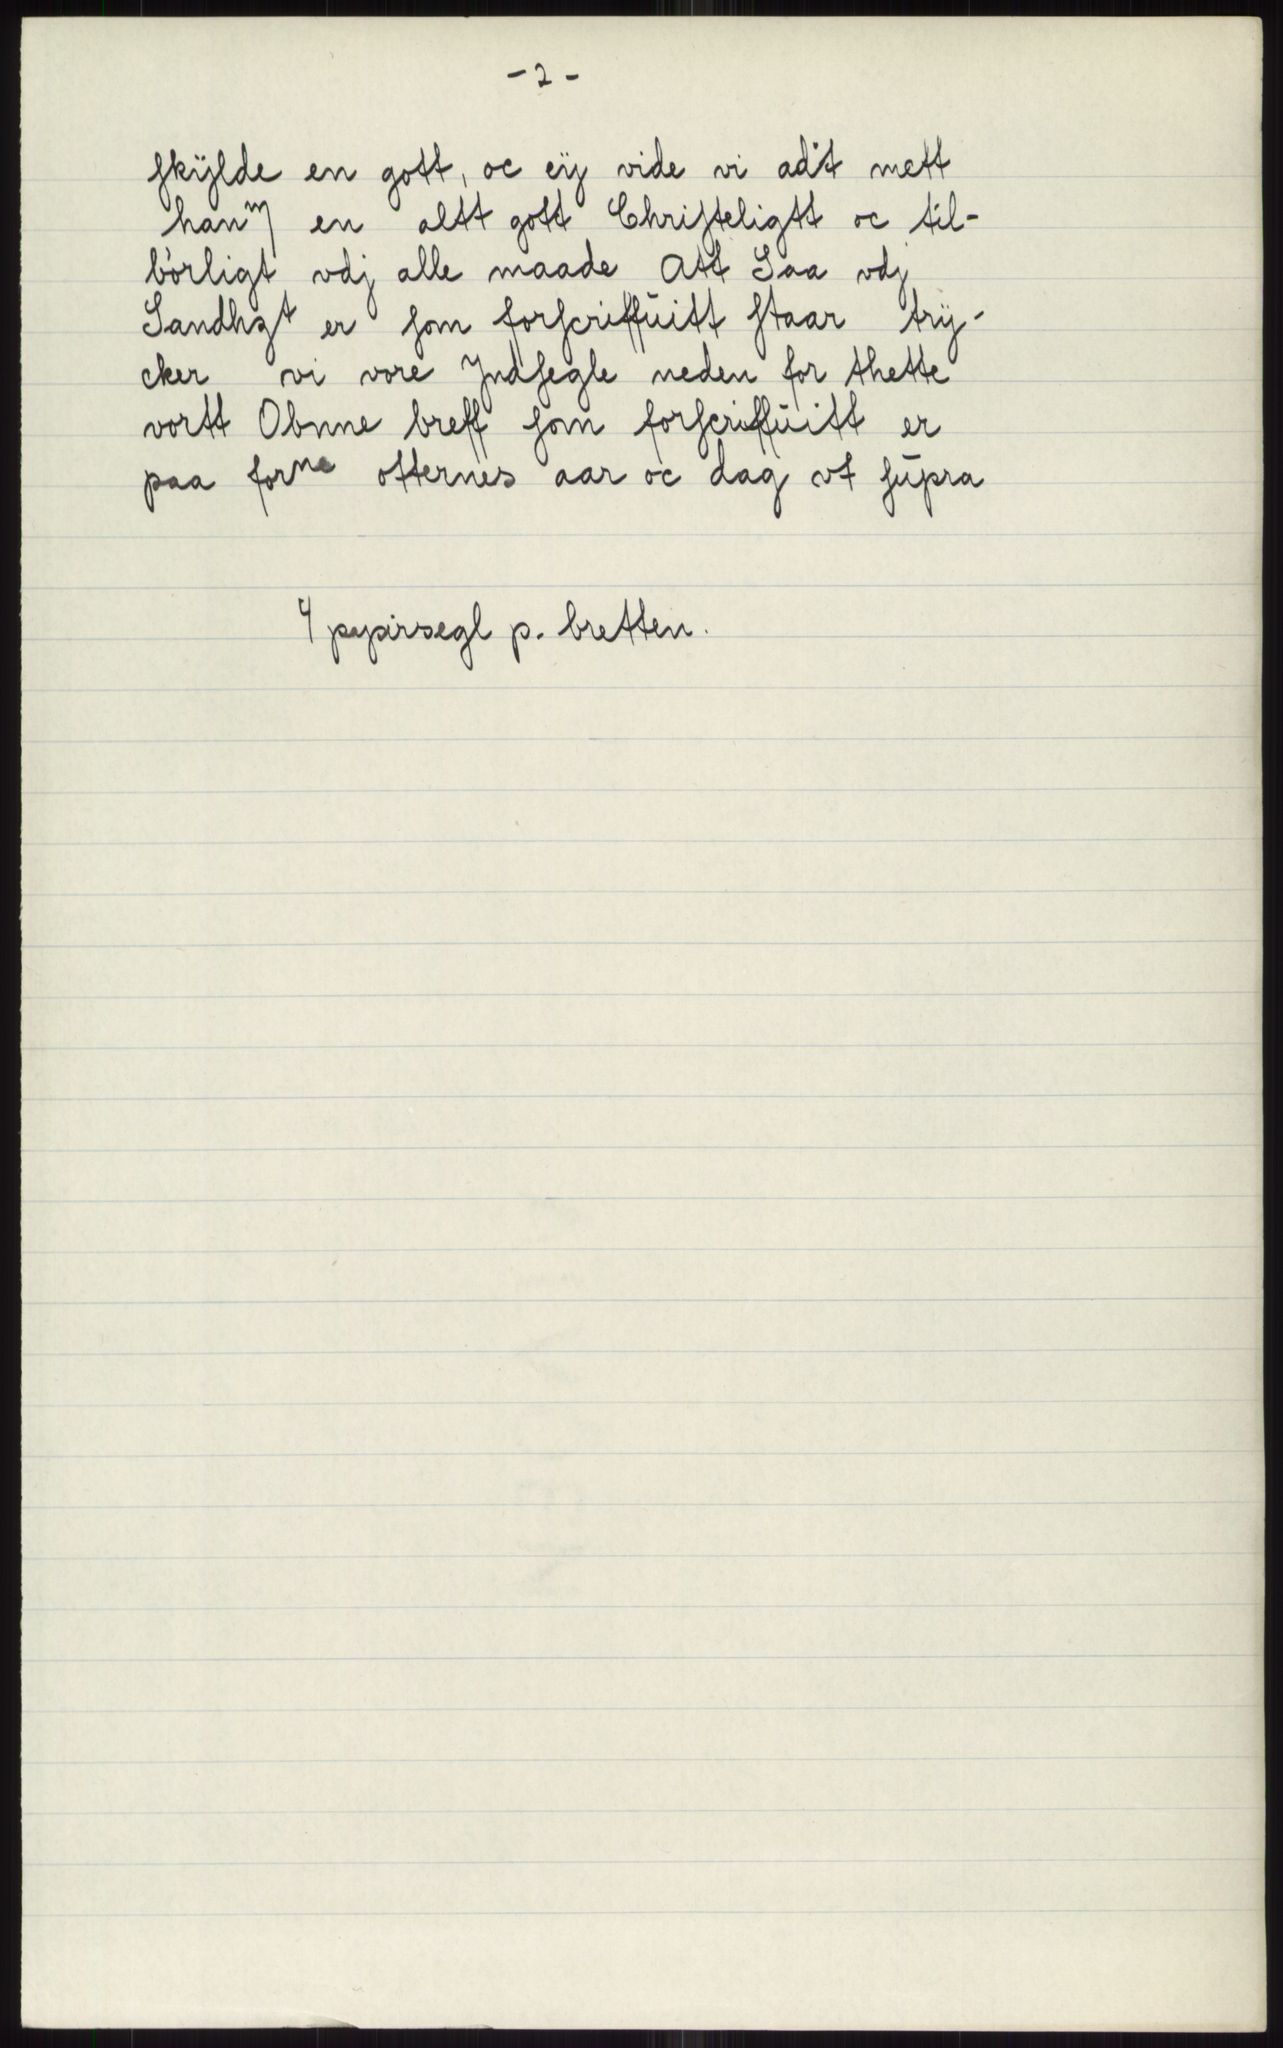 - 2 -
skÿlde en gott, oc eÿ vide vi adit mett
hanm en altt gott Christeligtt oc til-
börligt vdj alle maade Att Saa vdj
Sandhgt er som forscriffuitt staar trÿ-
cker vi vore Jndsegle neden for thette
vortt Obnne breff som forscriffuitt er
paa forne otternes aar oc dag vt supra
4 papirsegl p. bretten.